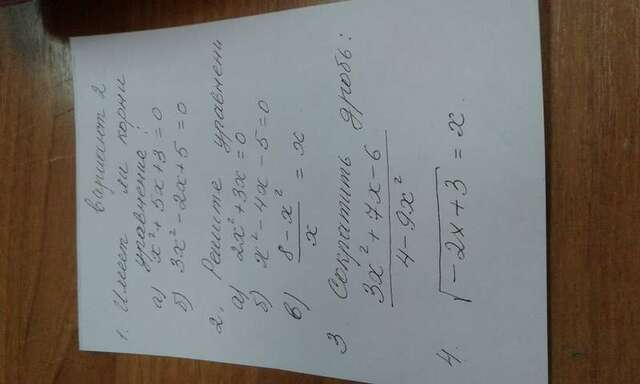 Вариант 2
1. Имеет ли корни
уравнение:
а) x² + 5x + 3 = 0
б) 3x² - 2x + 5 = 0
2. Решите уравнени
а) 2x² + 3x = 0
б) x² - 4x - 5 = 0
в) (8 - x²)/x = x
3 Сократить дробь:
(3x² + 7x - 6)/(4 - 9x²)
4. √(-2x + 3) = x